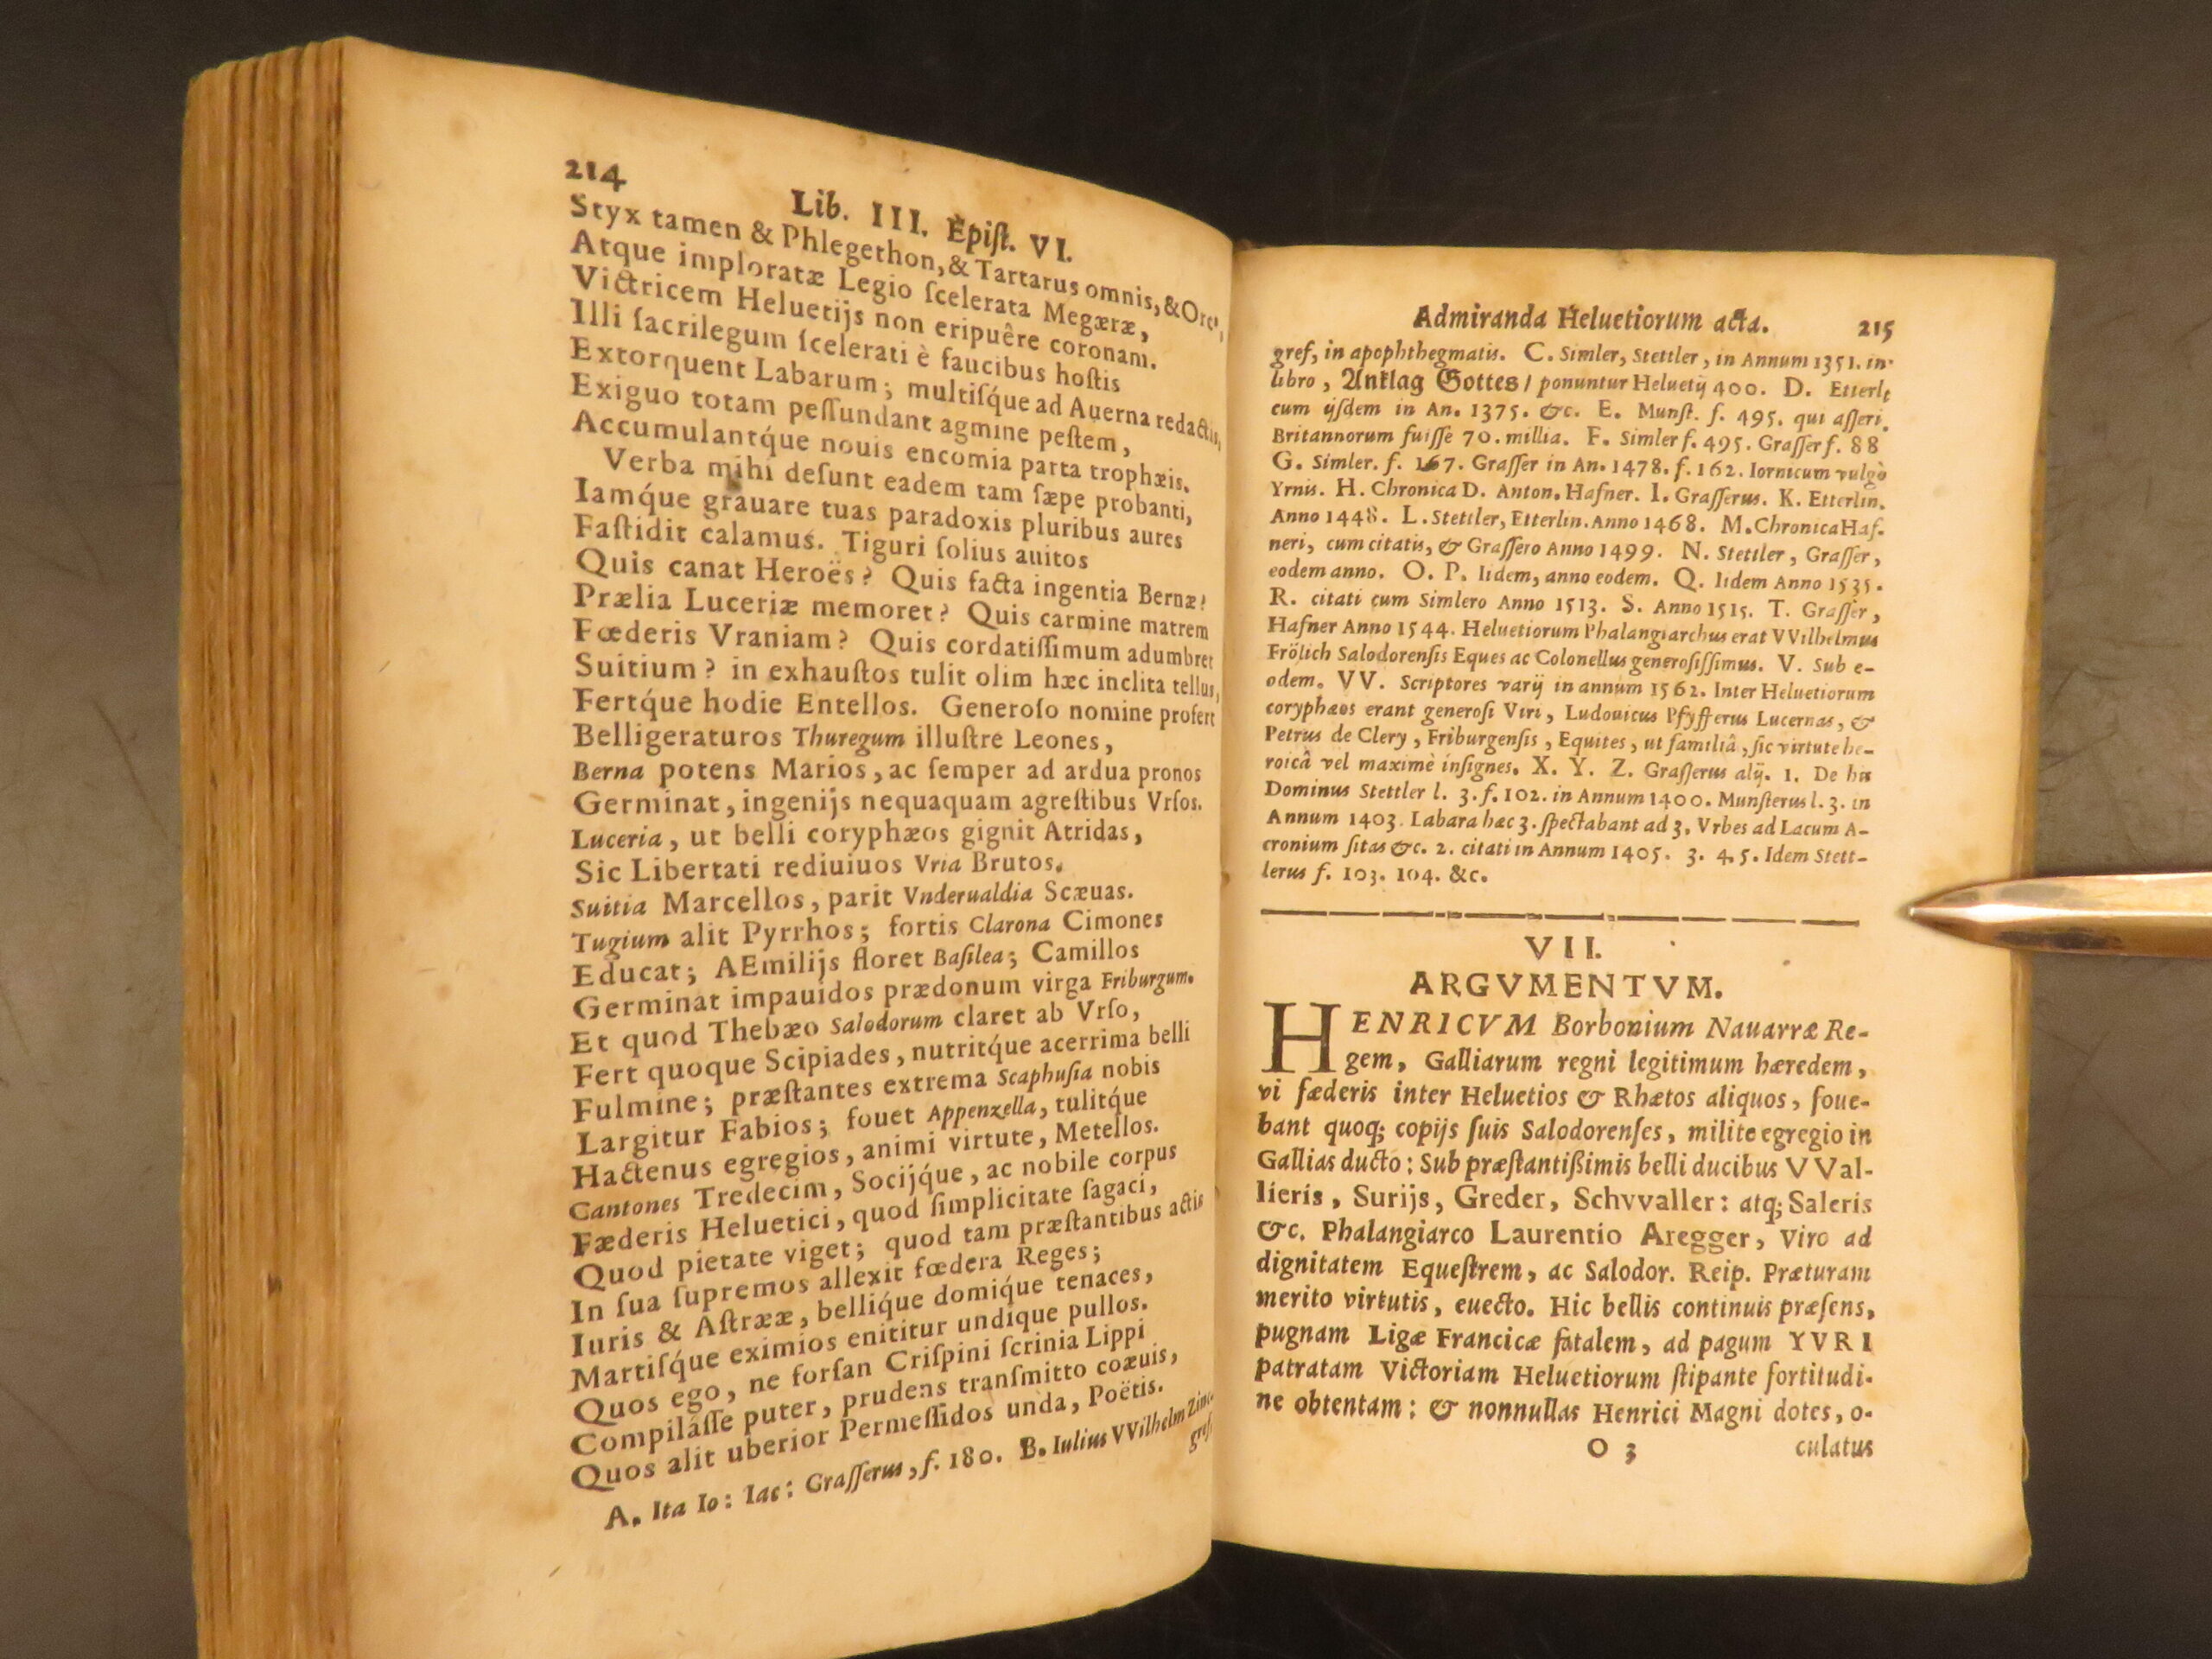 214
Lib. III. Epiſt. VI.
Styx tamen & Phlegethon, & Tartarus omnis, &
Atque imploratæ Legio ſcelerata Megæræ,
Victricem Heluetijs non eripuêre coronam.
Illi ſacrilegum ſcelerati è faucibus hoſtis
Extorquent Labarum; multiſq́ue ad Auerna redactis,
Exiguo totam peſſundant agmine peſtem,
Accumulantq́ue nouis encomia parta trophæis.
Verba mihi deſunt eadem tam ſæpe probanti,
Iamq́ue grauare tuas paradoxis pluribus aures
Faſtidit calamus. Tiguri ſolius auitos
Quis canat Heroës? Quis facta ingentia Bernæ?
Prælia Luceriæ memoret? Quis carmine matrem
Fœderis Vraniam? Quis cordatiſſimum adumbret
Suitium? in exhauſtos tulit olim hæc inclita tellus,
Fertq́ue hodie Entellos. Generoſo nomine profert
Belligeraturos Thuregum illuſtre Leones,
Berna potens Marios, ac ſemper ad ardua pronos
Germinat, ingenijs nequaquam agreſtibus Vrſos.
Luceria, ut belli coryphæos gignit Atridas,
Sic Libertati rediuiuos Vria Brutos.
Suitia Marcellos, parit Vnderualdia Scæuas.
Tugium alit Pyrrhos; fortis Clarona Cimones
Educat; AEmilijs floret Baſilea; Camillos
Germinat impauidos prædonum virga Friburgum.
Et quod Thebæo Salodorum claret ab Vrſo,
Fert quoque Scipiades, nutritq́ue acerrima belli
Fulmine; præſtantes extrema Scaphuſia nobis
Largitur Fabios; fouet Appenzella, tulitq́ue
Hactenus egregios, animi virtute, Metellos.
Cantones Tredecim, Socijq́ue, ac nobile corpus
Fœderis Heluetici, quod ſimplicitate ſagaci,
Quod pietate viget; quod tam præſtantibus actis
In ſua ſupremos allexit fœdera Reges;
Iuris & Aſtrææ, belliq́ue domiq́ue tenaces,
Martiſq́ue eximios enititur undique pullos.
Quos ego, ne forſan Criſpini ſcrinia Lippi
Compilâſſe puter, prudens tranſmitto coæuis,
Quos alit uberior Permeſſidos unda, Poëtis.
A. Ita Io: Iac: Graſſerus, f. 180. B. Iulius VVilhelm
greſ,
Admiranda Heluetiorum acta. 215
greſ, in apophthegmatis. C. Simler, Stettler, in Annum 1351. in
libro, Anklag Gottes / ponuntur Heluetij 400. D. Etterl,
cum ijſdem in An. 1375. &c. E. Munſt. f. 495. qui aſſeri.
Britannorum fuiſſe 70. millia. F. Simler f. 495. Graſſer f. 88
G. Simler. f. 167. Graſſer in An. 1478. f. 162. Iornicum vulgò
Yrnis. H. Chronica D. Anton. Hafner. I. Graſſerus. K. Etterlin.
Anno 1448. L. Stettler, Etterlin. Anno 1468. M. Chronica Haf-
neri, cum citatis, & Graſſero Anno 1499. N. Stettler, Graſſer,
eodem anno. O. P. Iidem, anno eodem. Q. Iidem Anno 1535.
R. citati cum Simlero Anno 1513. S. Anno 1515. T. Graſſer,
Hafner Anno 1544. Heluetiorum Phalangiarchus erat VVilhelmus
Frölich Salodorenſis Eques ac Colonellus generoſiſſimus. V. Sub e-
odem. VV. Scriptores varij in annum 1562. Inter Heluetiorum
coryphæos erant generoſi Viri, Ludouicus Pfyfferus Lucernas, &
Petrus de Clery, Friburgenſis, Equites, ut familiâ, ſic virtute he-
roicâ vel maximè inſignes. X. Y. Z. Graſſerus alij. 1. De his
Dominus Stettler l. 3. f. 102. in Annum 1400. Munſterus l. 3. in
Annum 1403. Labara hæc 3. ſpectabant ad 3. Vrbes ad Lacum A-
cronium ſitas &c. 2. citati in Annum 1405. 3. 4. 5. Idem Stett-
lerus f. 103. 104. &c.
VII.
ARGVMENTVM.
HENRICVM Borbonium Nauarræ Re-
gem, Galliarum regni legitimum hæredem,
vi fœderis inter Heluetios & Rhætos aliquos, foue-
bant quoq; copijs ſuis Salodorenſes, milite egregio in
Gallias ducto: Sub præſtantißimis belli ducibus VVal-
lieris, Surijs, Greder, Schvvaller: atq; Saleris
&c. Phalangiarco Laurentio Aregger, Viro ad
dignitatem Equeſtrem, ac Salodor. Reip. Præturam
merito virtutis, euecto. Hic bellis continuis præſens,
pugnam Ligæ Francicæ fatalem, ad pagum YVRI
patratam Victoriam Heluetiorum ſtipante fortitudi-
ne obtentam: & nonnullas Henrici Magni dotes, o-
O 3 culatus